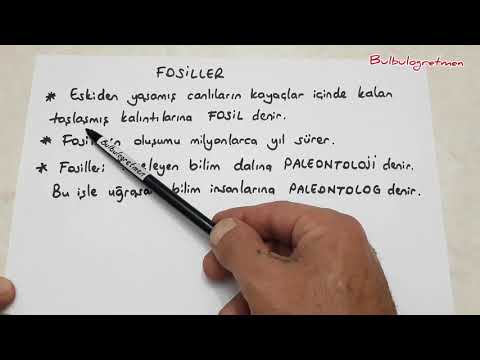 Bulbulogretmen
FOSİLLER
* Eskiden yaşamış canlıların kayaçlar içinde kalan
taşlaşmış kalıntılarına FOSİL denir.
* oluşumu milyonlarca yıl sürer.
* Fosilleri bilim dalına PALEONTOLOJİ denir.
Bu işle bilim insanlarına PALEONTOLOG denir.
Bulbulogretmen